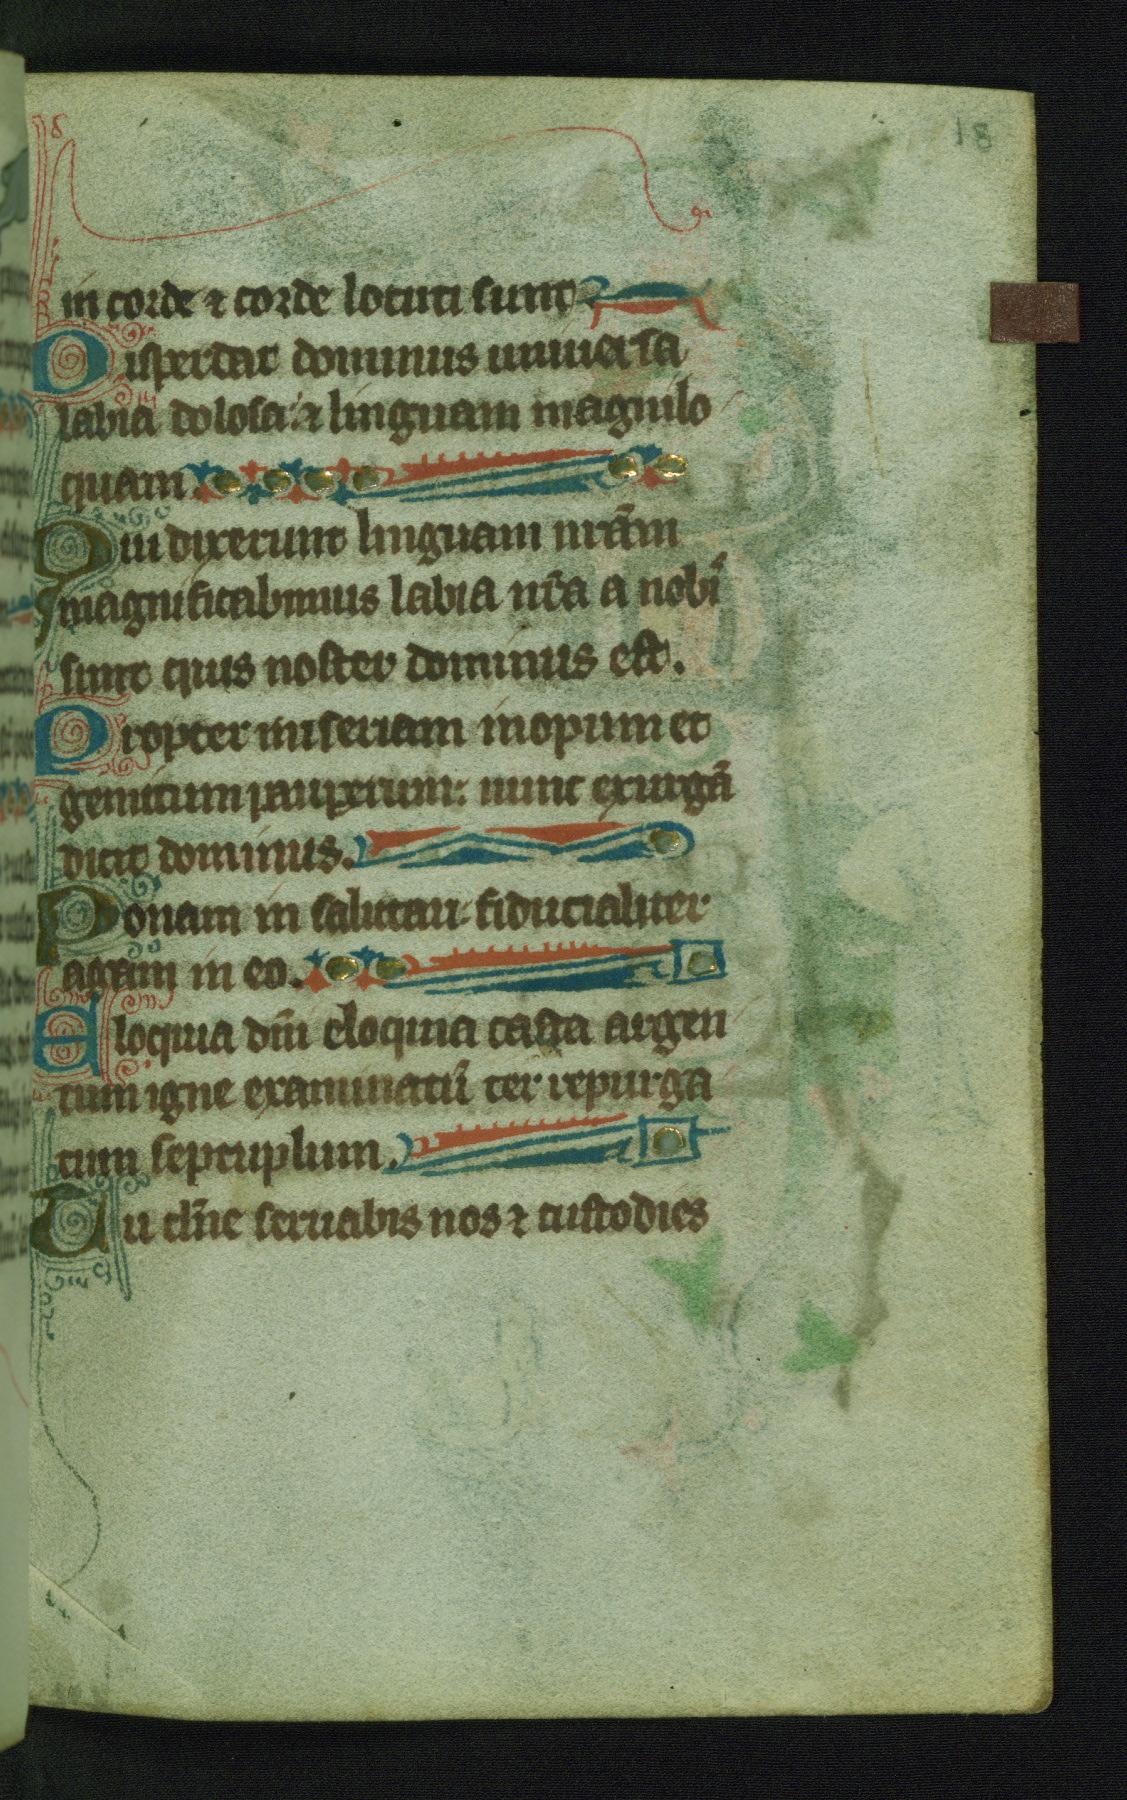 18
in corde ⁊ corde locuti sunt
Disperdat dominus uniuersa
labia dolosa: ⁊ linguam magnilo
quam.
Qui dixerunt linguam nr̄am
magnificabimus labia nr̄a a nobī
sunt quis noster dominus est.
Propter miseriam inopum et
gemitum pauperum: nunc exurgā
dicit dominus.
Ponam in salutari: fiducialiter
agam in eo.
Eloquia dn̄i eloquia casta argen
tum igne examinatū ter repurga
tum septuplum.
Tu dn̄e seruabis nos ⁊ custodies